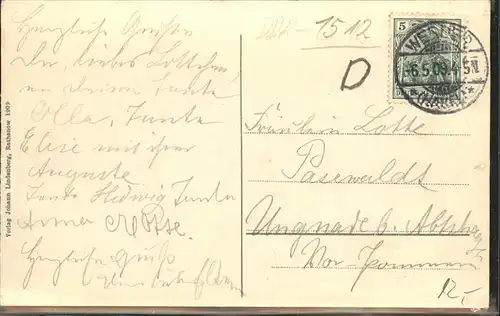 Herzliche Grüße
Dir, liebes Lottchen
von Deiner Tante
Olla, Tante
Elise mit ihrer
Auguste
Tante Hedwig Tante
Anna
Herzliche Grüße
Verlag Johann Lindenberg, Rathenow 1909
1512
D
5
6.5.09.
Fräulein Lotte
Pasewaldt
Ungnade b. Abtshagen
Vor-Pommern
12,-